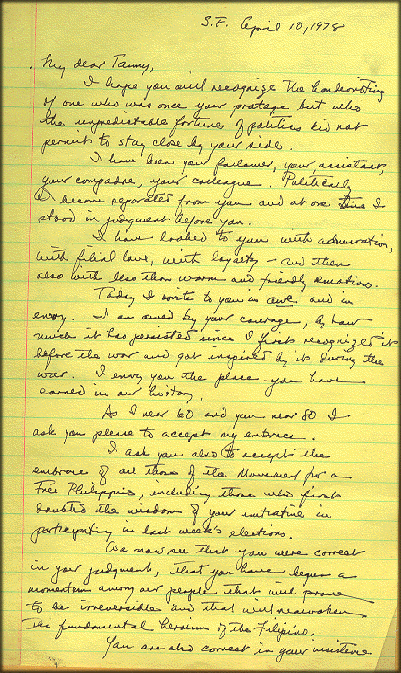 S.F. April 10, 1978
My dear Tanny,
I hope you will recognize the handwriting
of one who was once your protege but who
the unpredictable fortune of politics did not
permit to stay close by your side.
I have been your follower, your assistant,
your compadre, your colleague. Politically
I became separated from you and at one time I
stood in judgment before you.
I have looked to you with admiration,
with filial love, with loyalty – and then
also with less than warm and friendly emotions.
Today I write to you in awe and in
envy. I am awed by your courage, by how
much it has persisted since I first recognized it
before the war and got inspired by it during the
war. I envy you the place you have
earned in our history.
As I near 60 and you near 80 I
ask you please to accept my embrace.
I ask you also to accept the
embrace of all those of the Movement for a
Free Philippines, including those who first
doubted the wisdom of your initiative in
participating in last week's elections.
We now see that you were correct
in your judgment, that you have begun a
momentum among our people that will prove
to be irreversible and that will reawaken
the fundamental heroism of the Filipino.
You are also correct in your insistence